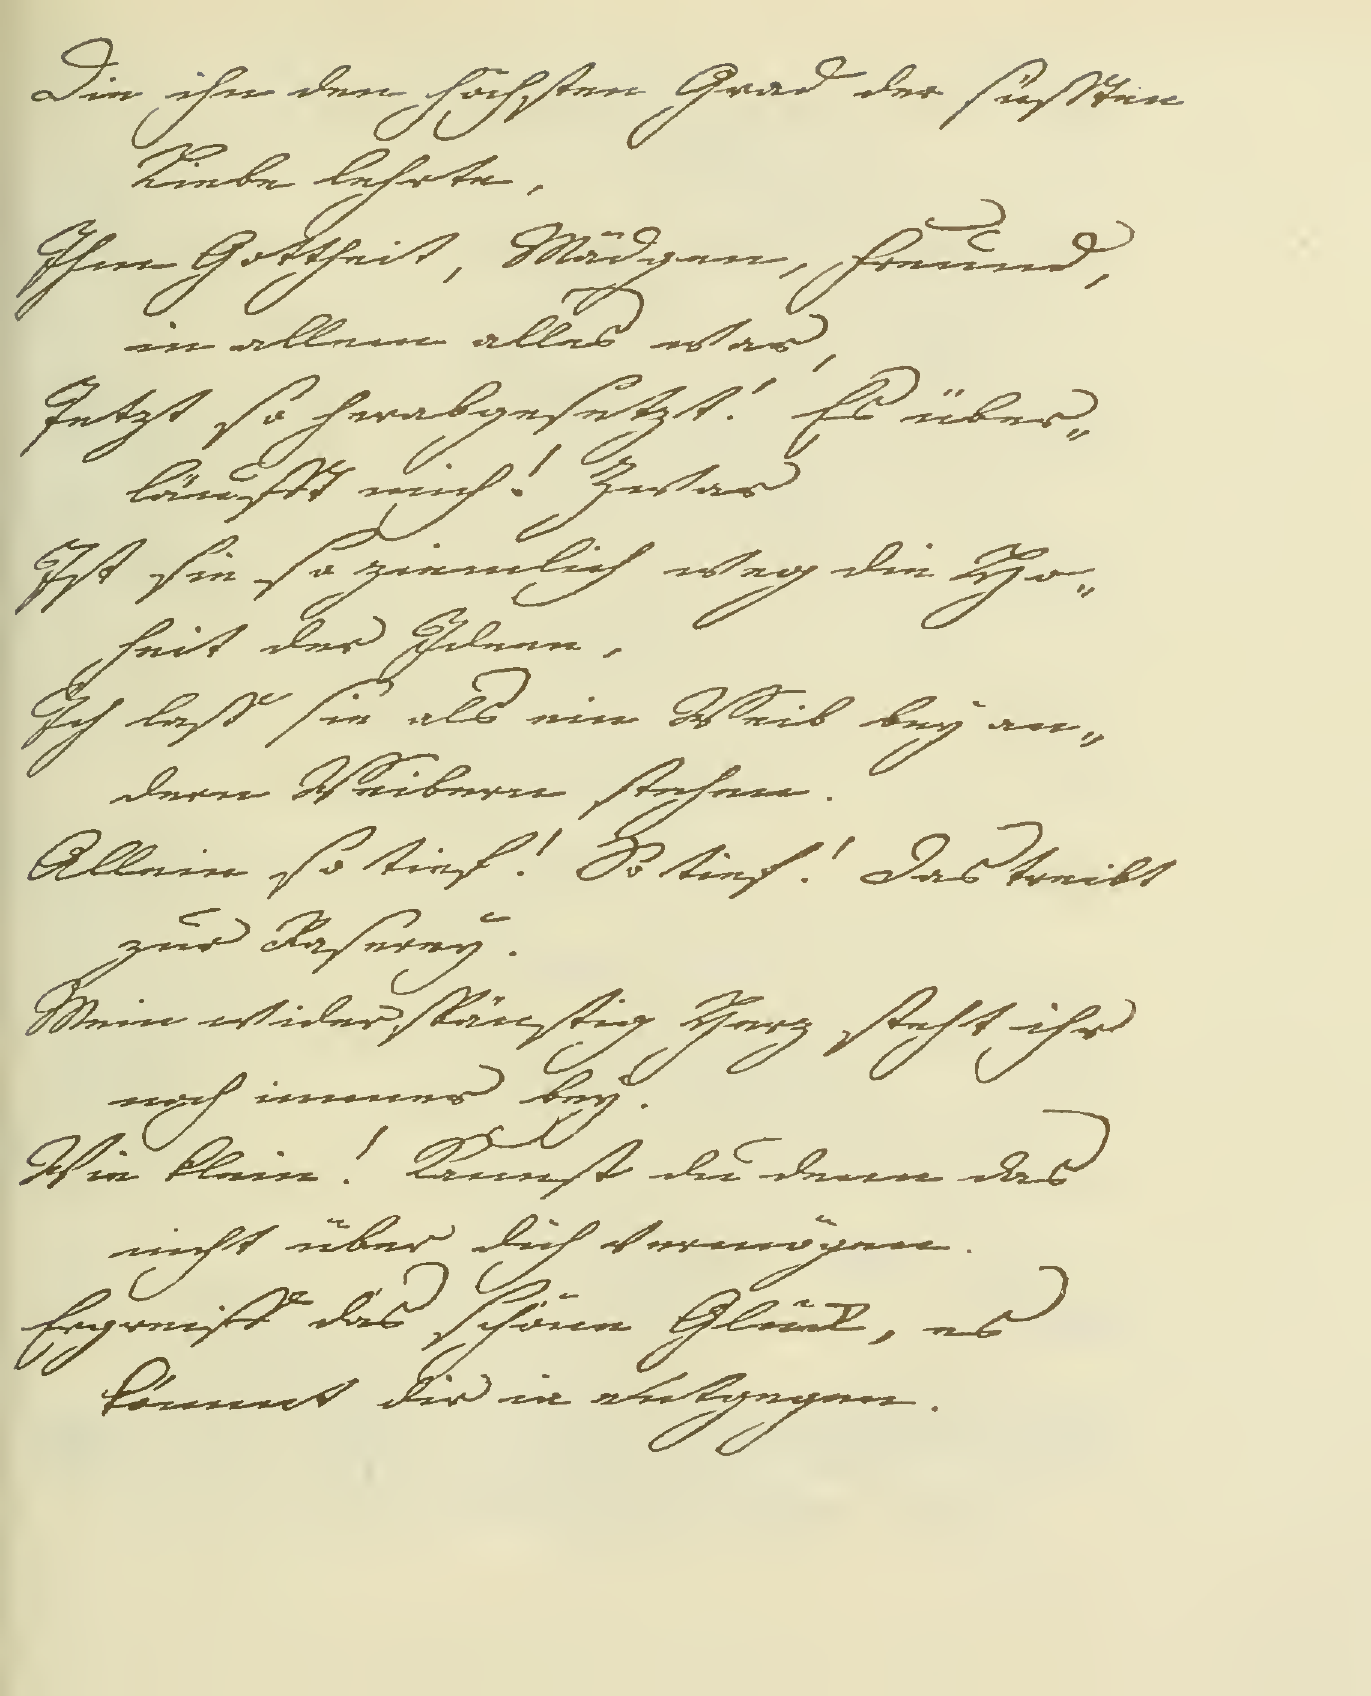 Die ihn den höchsten Grad der süssten
Liebe lehrte,
Ihm Gottheit, Mädgen, Freund,
in allem alles war,
Jetzt so herabgesetzt! Es über„
läufft mich! Zwar
Ist sie so ziemlich weg die Ho„
heit der Ideen,
Ich lass sie als ein Weib bey an„
dern Weibern stehen.
Allein so tief! So tief! Das treibt
zur Raserey.
Mein widerspänstig Herz steht ihr
noch immer bey.
Wie klein! Kannst du denn das
nicht über dich vermögen.
Ergreiff das schöne Glück, es
kömmt dir ia entgegen.